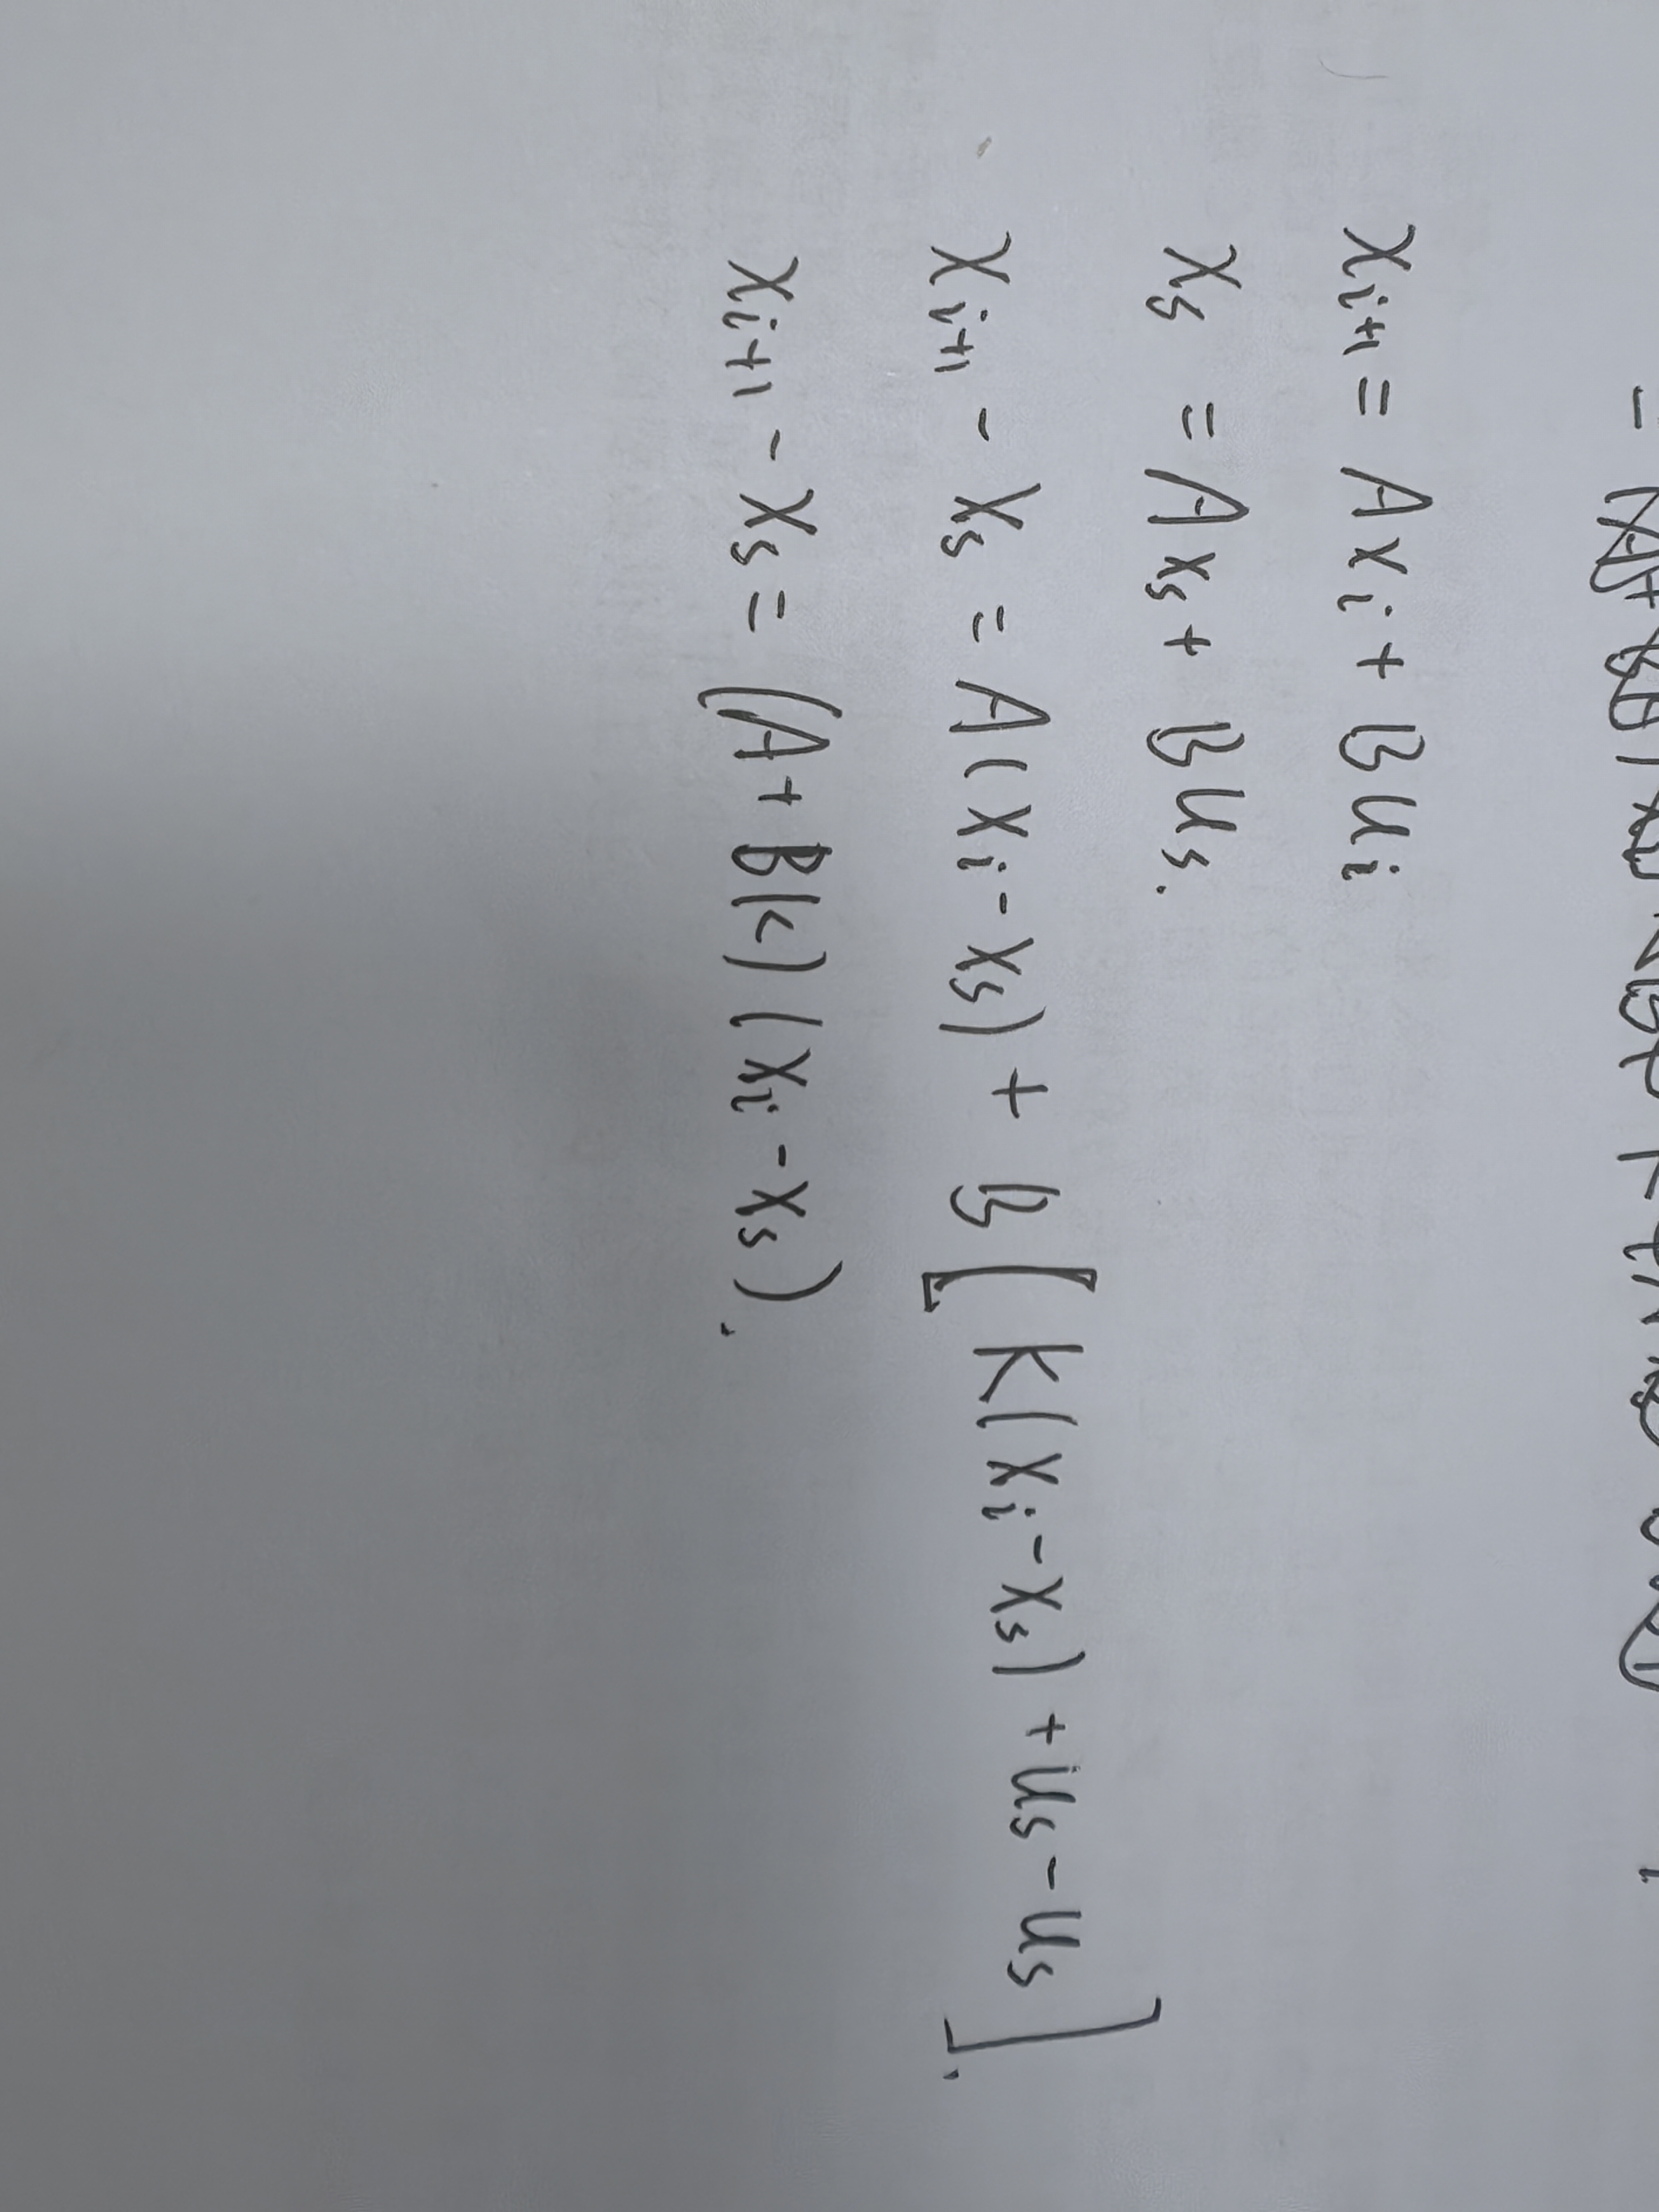 x_{i+1} = A x_i + B u_i
x_s = A x_s + B u_s.
x_{i+1} - x_s = A(x_i - x_s) + B[K(x_i - x_s) + u_s - u_s].
x_{i+1} - x_s = (A + BK)(x_i - x_s).